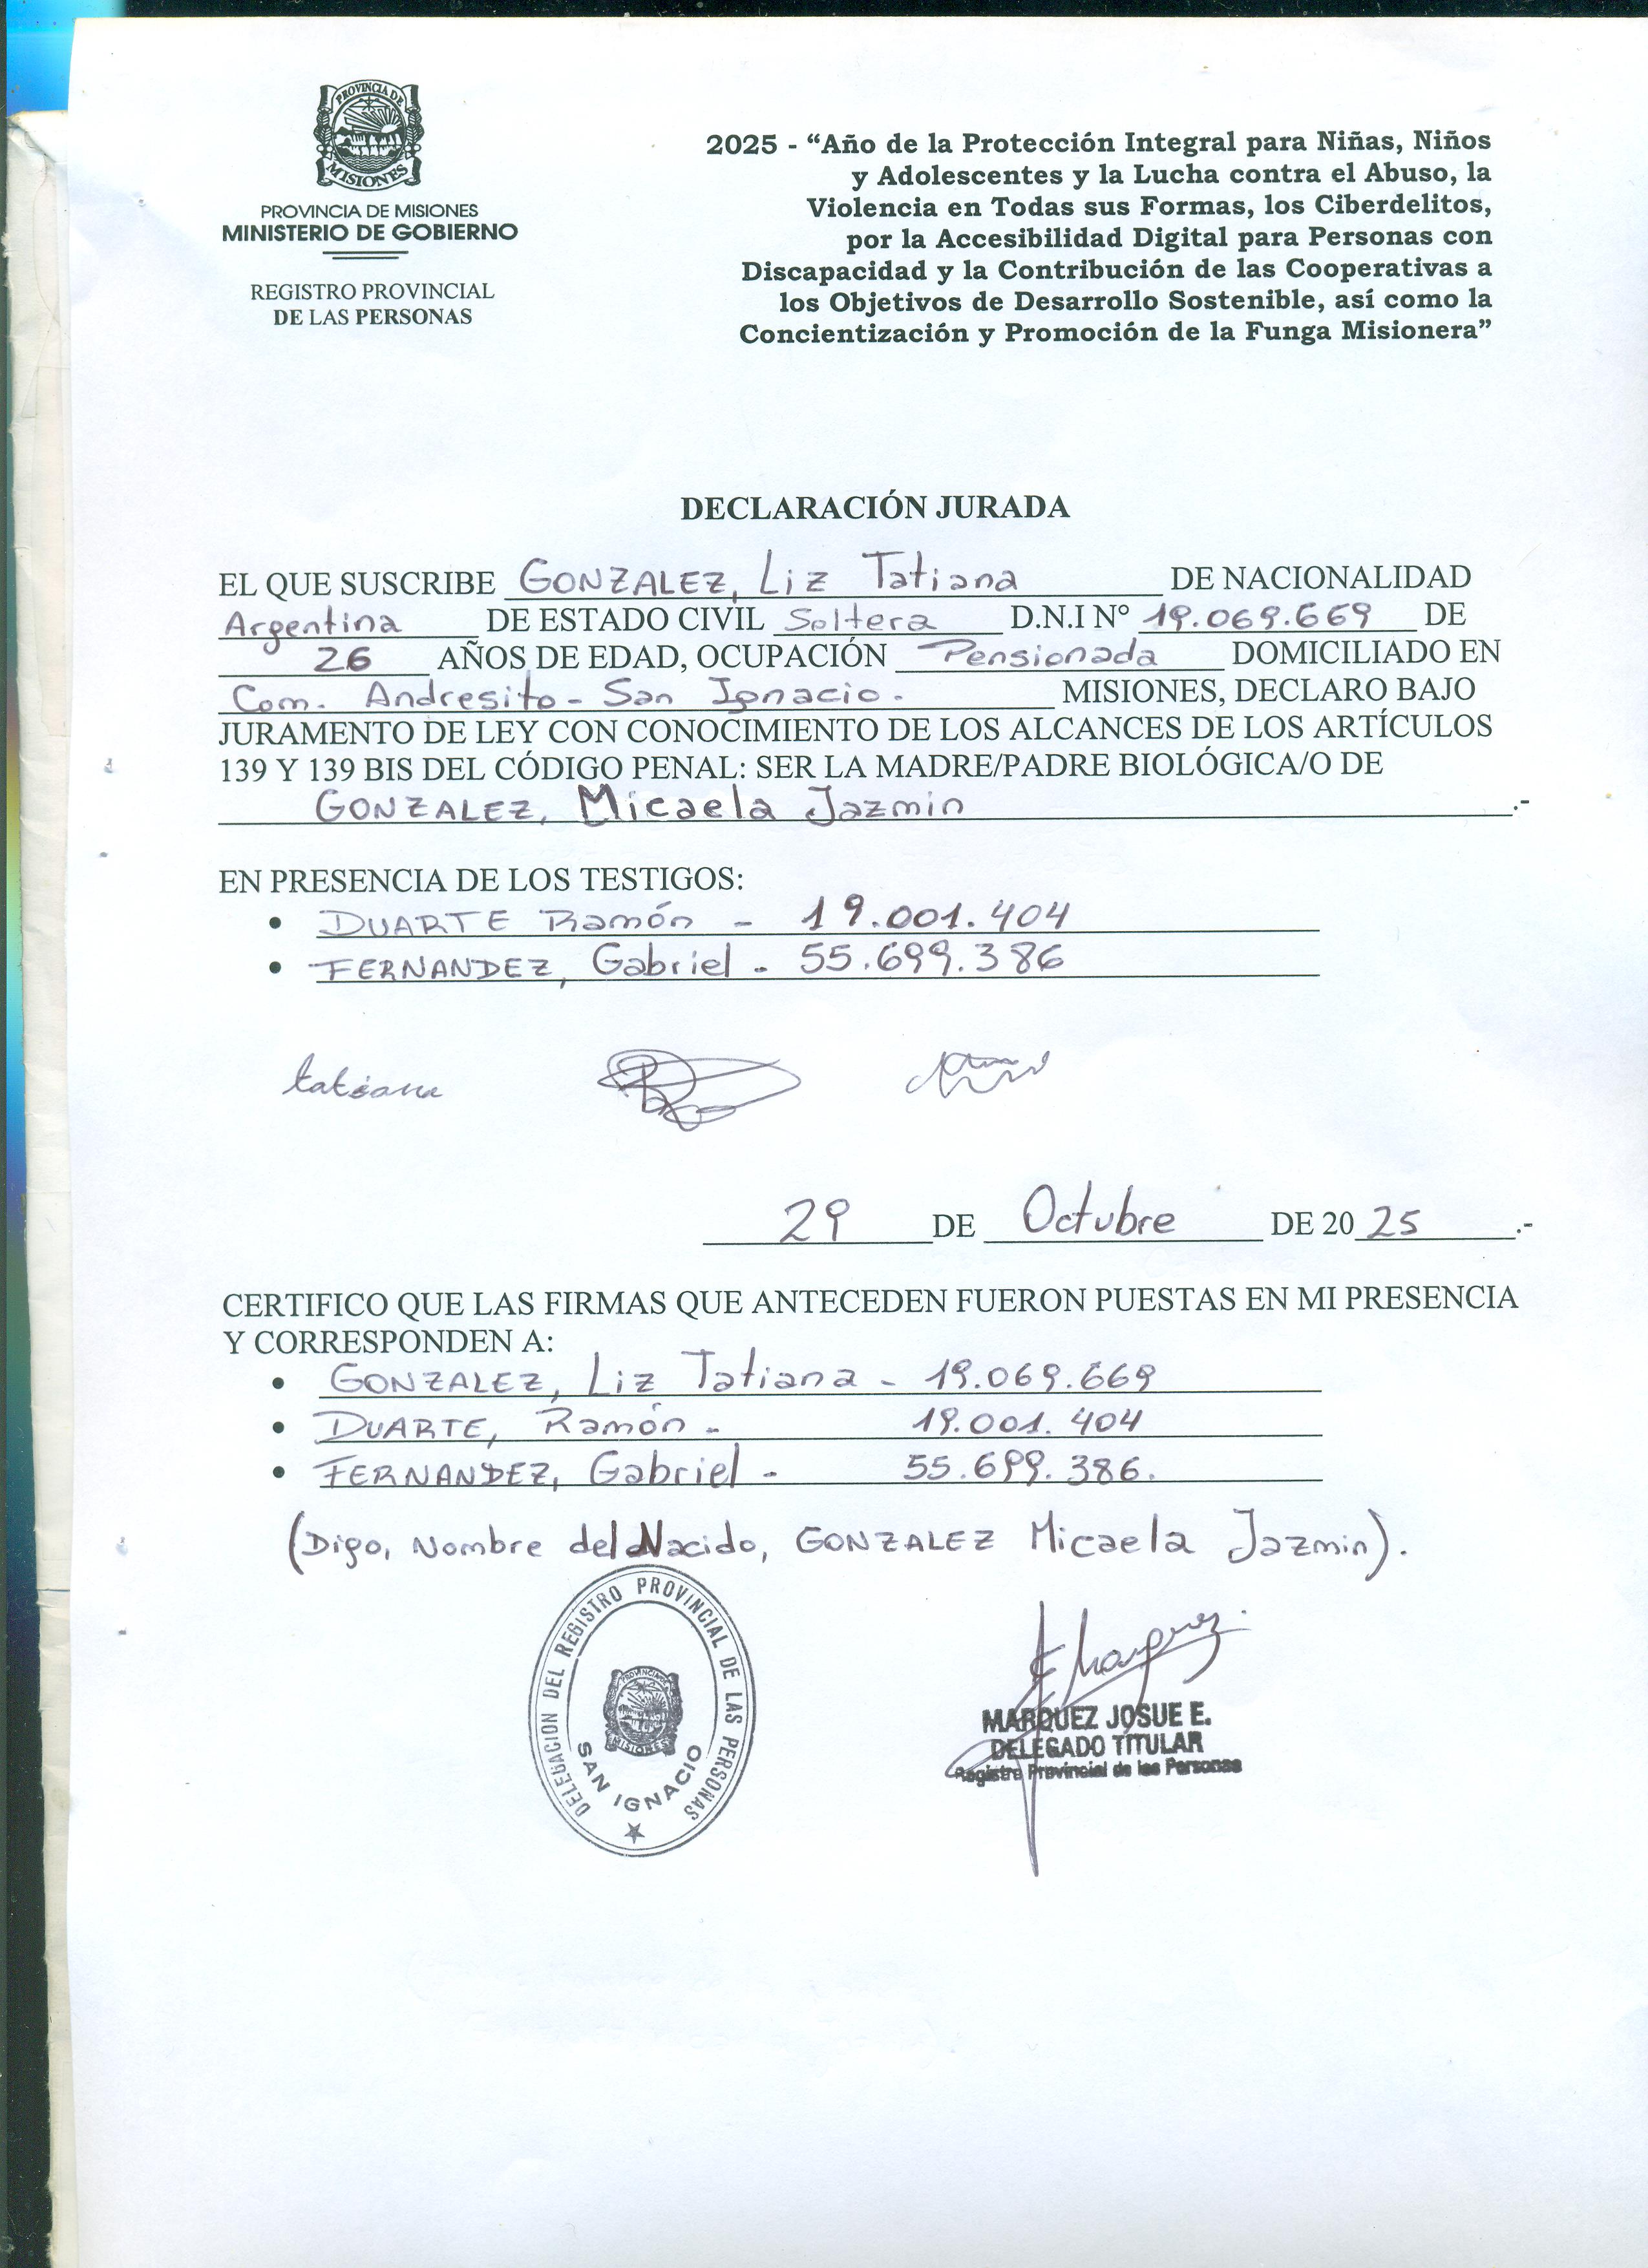 PROVINCIA DE
MISIONES
PROVINCIA DE MISIONES
MINISTERIO DE GOBIERNO
REGISTRO PROVINCIAL
DE LAS PERSONAS
2025 - “Año de la Protección Integral para Niñas, Niños
y Adolescentes y la Lucha contra el Abuso, la
Violencia en Todas sus Formas, los Ciberdelitos,
por la Accesibilidad Digital para Personas con
Discapacidad y la Contribución de las Cooperativas a
los Objetivos de Desarrollo Sostenible, así como la
Concientización y Promoción de la Funga Misionera”
DECLARACIÓN JURADA
EL QUE SUSCRIBE GONZALEZ, Liz Tatiana DE NACIONALIDAD
Argentina DE ESTADO CIVIL Soltera D.N.I N° 19.069.669 DE
26 AÑOS DE EDAD, OCUPACIÓN Pensionada DOMICILIADO EN
Com. Andresito - San Ignacio. MISIONES, DECLARO BAJO
JURAMENTO DE LEY CON CONOCIMIENTO DE LOS ALCANCES DE LOS ARTÍCULOS
139 Y 139 BIS DEL CÓDIGO PENAL: SER LA MADRE/PADRE BIOLÓGICA/O DE
GONZALEZ, Micaela Jazmin .-
EN PRESENCIA DE LOS TESTIGOS:
• DUARTE Ramón - 19.001.404
• FERNANDEZ, Gabriel - 55.699.386
tatiana
29 DE Octubre DE 2025 .-
CERTIFICO QUE LAS FIRMAS QUE ANTECEDEN FUERON PUESTAS EN MI PRESENCIA
Y CORRESPONDEN A:
• GONZALEZ, Liz Tatiana - 19.069.669
• DUARTE, Ramón - 19.001.404
• FERNANDEZ, Gabriel - 55.699.386.
(Digo, Nombre del Nacido, GONZALEZ Micaela Jazmin).
DELEGACION DEL REGISTRO PROVINCIAL DE LAS PERSONAS
PROVINCIA
MISIONES
SAN IGNACIO
Marquez
MARQUEZ JOSUE E.
DELEGADO TITULAR
Registro Provincial de las Personas